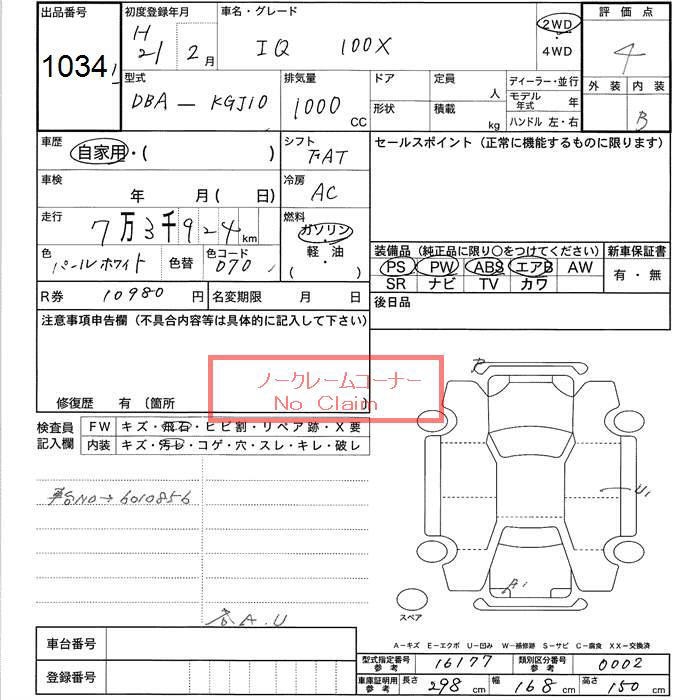 出品番号 初度登録年月 車名・グレード 評価点
10341 H21 2月 IQ 100X 2WD・4WD 4
型式 排気量 ドア 定員 人 ディーラー・並行 外装 内装
DBA－KGJ10 1000 CC 形状 積載 kg モデル年式 年 B
ハンドル 左・右
車歴 自家用・( ) シフト FAT セールスポイント (正常に機能するものに限ります)
車検 年 月(日) 冷房 AC
走行 7万3千924km 燃料 ガソリン・軽・油・( )
色 パールホワイト 色替 色コード 070 装備品 (純正品に限り○をつけてください) 新車保証書
PS PW ABS エアB AW 有・無
SR ナビ TV カワ
R券 10980円 名変期限 月 日 後日品
注意事項申告欄 (不具合内容等は具体的に記入して下さい)
ノークレームコーナー
No Claim
修復歴 有 (箇所 )
R
検査員記入欄 FW キズ・飛石・ヒビ割・リペア跡・X要
内装 キズ・汚レ・コゲ・穴・スレ・キレ・破レ
車台NO→6010856
U1
A1
各A.U
スペア
A－キズ E－エクボ U－凹み W－補修跡 S－サビ C－腐食 XX－交換済
車台番号
登録番号
型式指定番号参考 16177 類別区分番号参考 0002
車庫証明用参考 長さ 298cm 幅 168cm 高さ 150cm